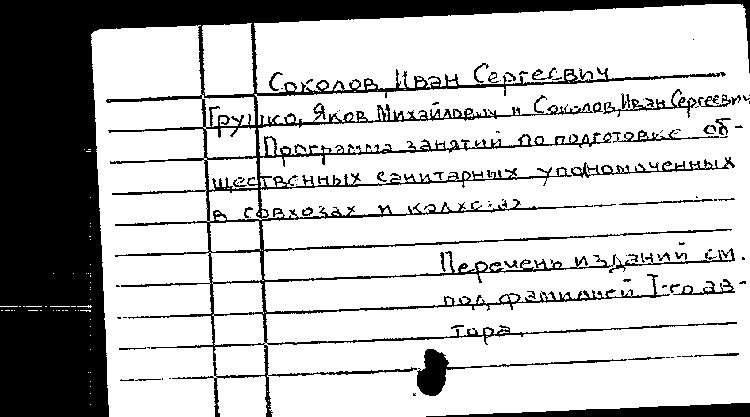 Соколов, Иван Сергеевич
Грушко, Яков Михайлович и Соколов, Иван Сергеевич
Программа занятий по подготовке об-
щественных санитарных уполномоченных
в совхозах и колхозах.
Перечень изданий см.
под фамилией I-го ав-
тора.